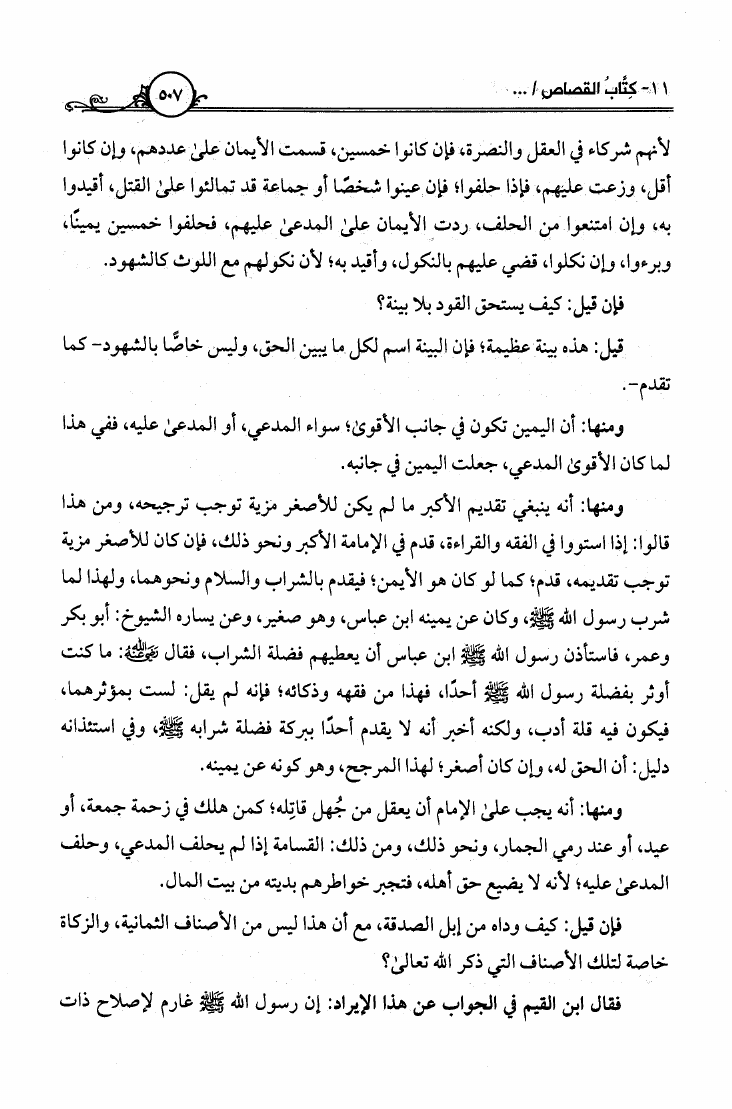 ١١- كِتَابُ القصاص / ...
٥٠٧
لأنهم شركاء في العقل والنصرة، فإن كانوا خمسين، قسمت الأيمان على عددهم، وإن كانوا
أقل، وزعت عليهم، فإذا حلفوا؛ فإن عينوا شخصًا أو جماعة قد تمالئوا على القتل، أقيدوا
به، وإن امتنعوا من الحلف، ردت الأيمان على المدعى عليهم، فحلفوا خمسين يمينًا،
وبرءوا، وإن نكلوا، قضي عليهم بالنكول، وأقيد به؛ لأن نكولهم مع اللوث كالشهود.
فإن قيل: كيف يستحق القود بلا بينة؟
قيل: هذه بينة عظيمة؛ فإن البينة اسم لكل ما يبين الحق، وليس خاصًّا بالشهود- كما
تقدم-.
ومنها: أن اليمين تكون في جانب الأقوى؛ سواء المدعي، أو المدعى عليه، ففي هذا
لما كان الأقوى المدعي، جعلت اليمين في جانبه.
ومنها: أنه ينبغي تقديم الأكبر ما لم يكن للأصغر مزية توجب ترجيحه، ومن هذا
قالوا: إذا استووا في الفقه والقراءة، قدم في الإمامة الأكبر ونحو ذلك، فإن كان للأصغر مزية
توجب تقديمه، قدم؛ كما لو كان هو الأيمن؛ فيقدم بالشراب والسلام ونحوهما، ولهذا لما
شرب رسول الله ﷺ، وكان عن يمينه ابن عباس، وهو صغير، وعن يساره الشيوخ: أبو بكر
وعمر، فاستأذن رسول الله ﷺ ابن عباس أن يعطيهم فضلة الشراب، فقال رضي الله عنه: ما كنت
أوثر بفضلة رسول الله ﷺ أحدًا، فهذا من فقهه وذكائه؛ فإنه لم يقل: لست بمؤثرهما،
فيكون فيه قلة أدب، ولكنه أخبر أنه لا يقدم أحدًا ببركة فضلة شرابه ﷺ، وفي استئذانه
دليل: أن الحق له، وإن كان أصغر؛ لهذا المرجح، وهو كونه عن يمينه.
ومنها: أنه يجب على الإمام أن يعقل من جُهل قاتِله؛ كمن هلك في زحمة جمعة، أو
عيد، أو عند رمي الجمار، ونحو ذلك، ومن ذلك: القسامة إذا لم يحلف المدعي، وحلف
المدعى عليه؛ لأنه لا يضيع حق أهله، فتجبر خواطرهم بديته من بيت المال.
فإن قيل: كيف وداه من إبل الصدقة، مع أن هذا ليس من الأصناف الثمانية، والزكاة
خاصة لتلك الأصناف التي ذكر الله تعالى؟
فقال ابن القيم في الجواب عن هذا الإيراد: إن رسول الله ﷺ غارم لإصلاح ذات